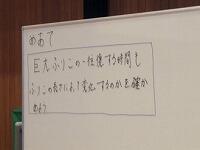 めあて
巨大ふりこの一往復する時間も
ふりこの長さによって変化するのかを確か
めよう